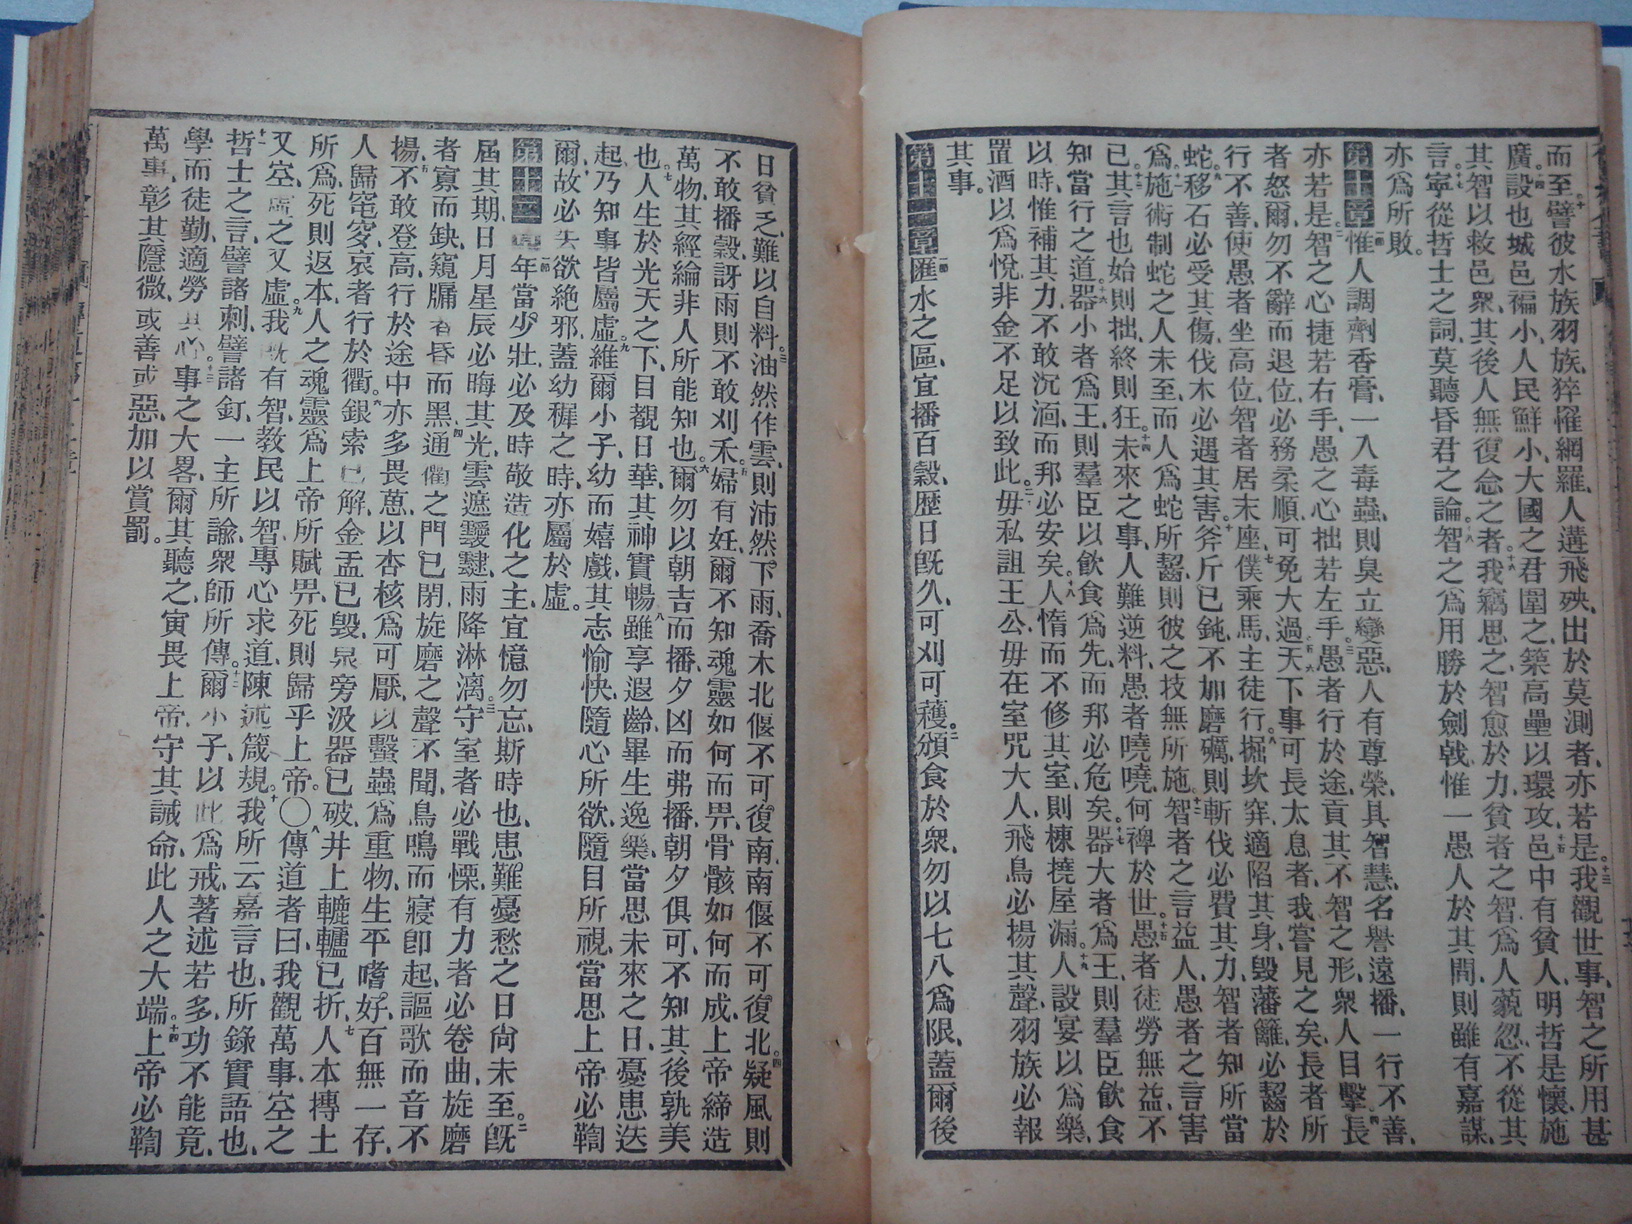 而至譬彼水族羽族猝罹網羅人遘飛殃出於莫測者亦若是十三我觀世事智之所用甚
廣十四設也城邑褊小人民鮮小大國之君圍之築高壘以環攻十五邑中有貧人明哲是懷施
其智以救邑衆其後人無復念之者十六我竊思之智愈於力貧者之智爲人藐忽不從其
言十七寧從哲士之詞莫聽昏君之論十八智之爲用勝於劍戟惟一愚人於其間則雖有嘉謀
亦爲所敗
第十章一節惟人調劑香膏一入毒蟲則臭立變惡人有尊榮具智慧名譽遠播一行不善
亦若是二智之心捷若右手愚之心拙若左手三愚者行於途貢其不智之形衆人目擊四長
者怒爾勿不辭而退位必務柔順可免大過五六天下事可長太息者我嘗見之矣長者所
行不善使愚者坐高位智者居末座七僕乘馬主徒行八掘坎穽適陷其身毀藩籬必齧於
蛇九移石必受其傷伐木必遇其害十斧斤已鈍不加磨礪則斬伐必費其力智者知所當
爲十一施術制蛇之人未至而人爲蛇所齧則彼之技無所施十二智者之言益人愚者之言害
已十三其言也始則拙終則狂十四未來之事人難逆料愚者嘵嘵何裨於世十五愚者徒勞無益不
知當行之道十六器小者爲王則羣臣以飲食爲先而邦必危矣十七器大者爲王則羣臣飲食
以時惟補其力不敢沉湎而邦必安矣十八人惰而不修其室則棟撓屋漏十九人設宴以爲樂
置酒以爲悅非金不足以致此二十毋私詛王公毋在室咒大人飛鳥必揚其聲羽族必報
其事
第十一章一節匯水之區宜播百穀歷日旣久可刈可穫二頒食於衆勿以七八爲限蓋爾後
日貧乏難以自料三油然作雲則沛然下雨喬木北偃不可復南南偃不可復北四疑風則
不敢播穀訝雨則不敢刈禾五婦有妊爾不知魂靈如何而畀骨骸如何而成上帝締造
萬物其經綸非人所能知也六爾勿以朝吉而播夕凶而弗播朝夕俱可不知其後孰美
也七人生於光天之下目覩日華其神實暢八雖享遐齡畢生逸樂當思未來之日憂患迭
起乃知事皆屬虛九維爾小子幼而嬉戲其志愉快隨心所欲隨目所視當思上帝必鞫
爾十故必去欲絶邪蓋幼穉之時亦屬於虛
第十二章一節年當少壯必及時敬造化之主宜憶勿忘斯時也患難憂愁之日尙未至二旣
屆其期日月星辰必晦其光雲遮靉靆雨降淋漓三守室者必戰慄有力者必卷曲旋磨
者寡而缺窺牖者昏而黑四通衢之門已閉旋磨之聲不聞鳥鳴而寢卽起謳歌而音不
揚五不敢登高行於途中亦多畏葸以杏核爲可厭以螽蟲爲重物生平嗜好百無一存
人歸窀穸哀者行於衢六銀索已解金盂已毀泉旁汲器已破井上轆轤已折七人本摶土
所爲死則返本人之魂靈爲上帝所賦畀死則歸乎上帝〇八傳道者曰我觀萬事空之
又空虛之又虛九我旣有智敎民以智專心求道陳述箴規十我所云嘉言也所錄實語也
十一哲士之言譬諸刺譬諸釘一主所諭衆師所傳十二爾小子以此爲戒著述若多功不能竟
學而徒勤適勞其心十三事之大畧爾其聽之寅畏上帝守其誡命此人之大端十四上帝必鞫
萬事彰其隱微或善或惡加以賞罰